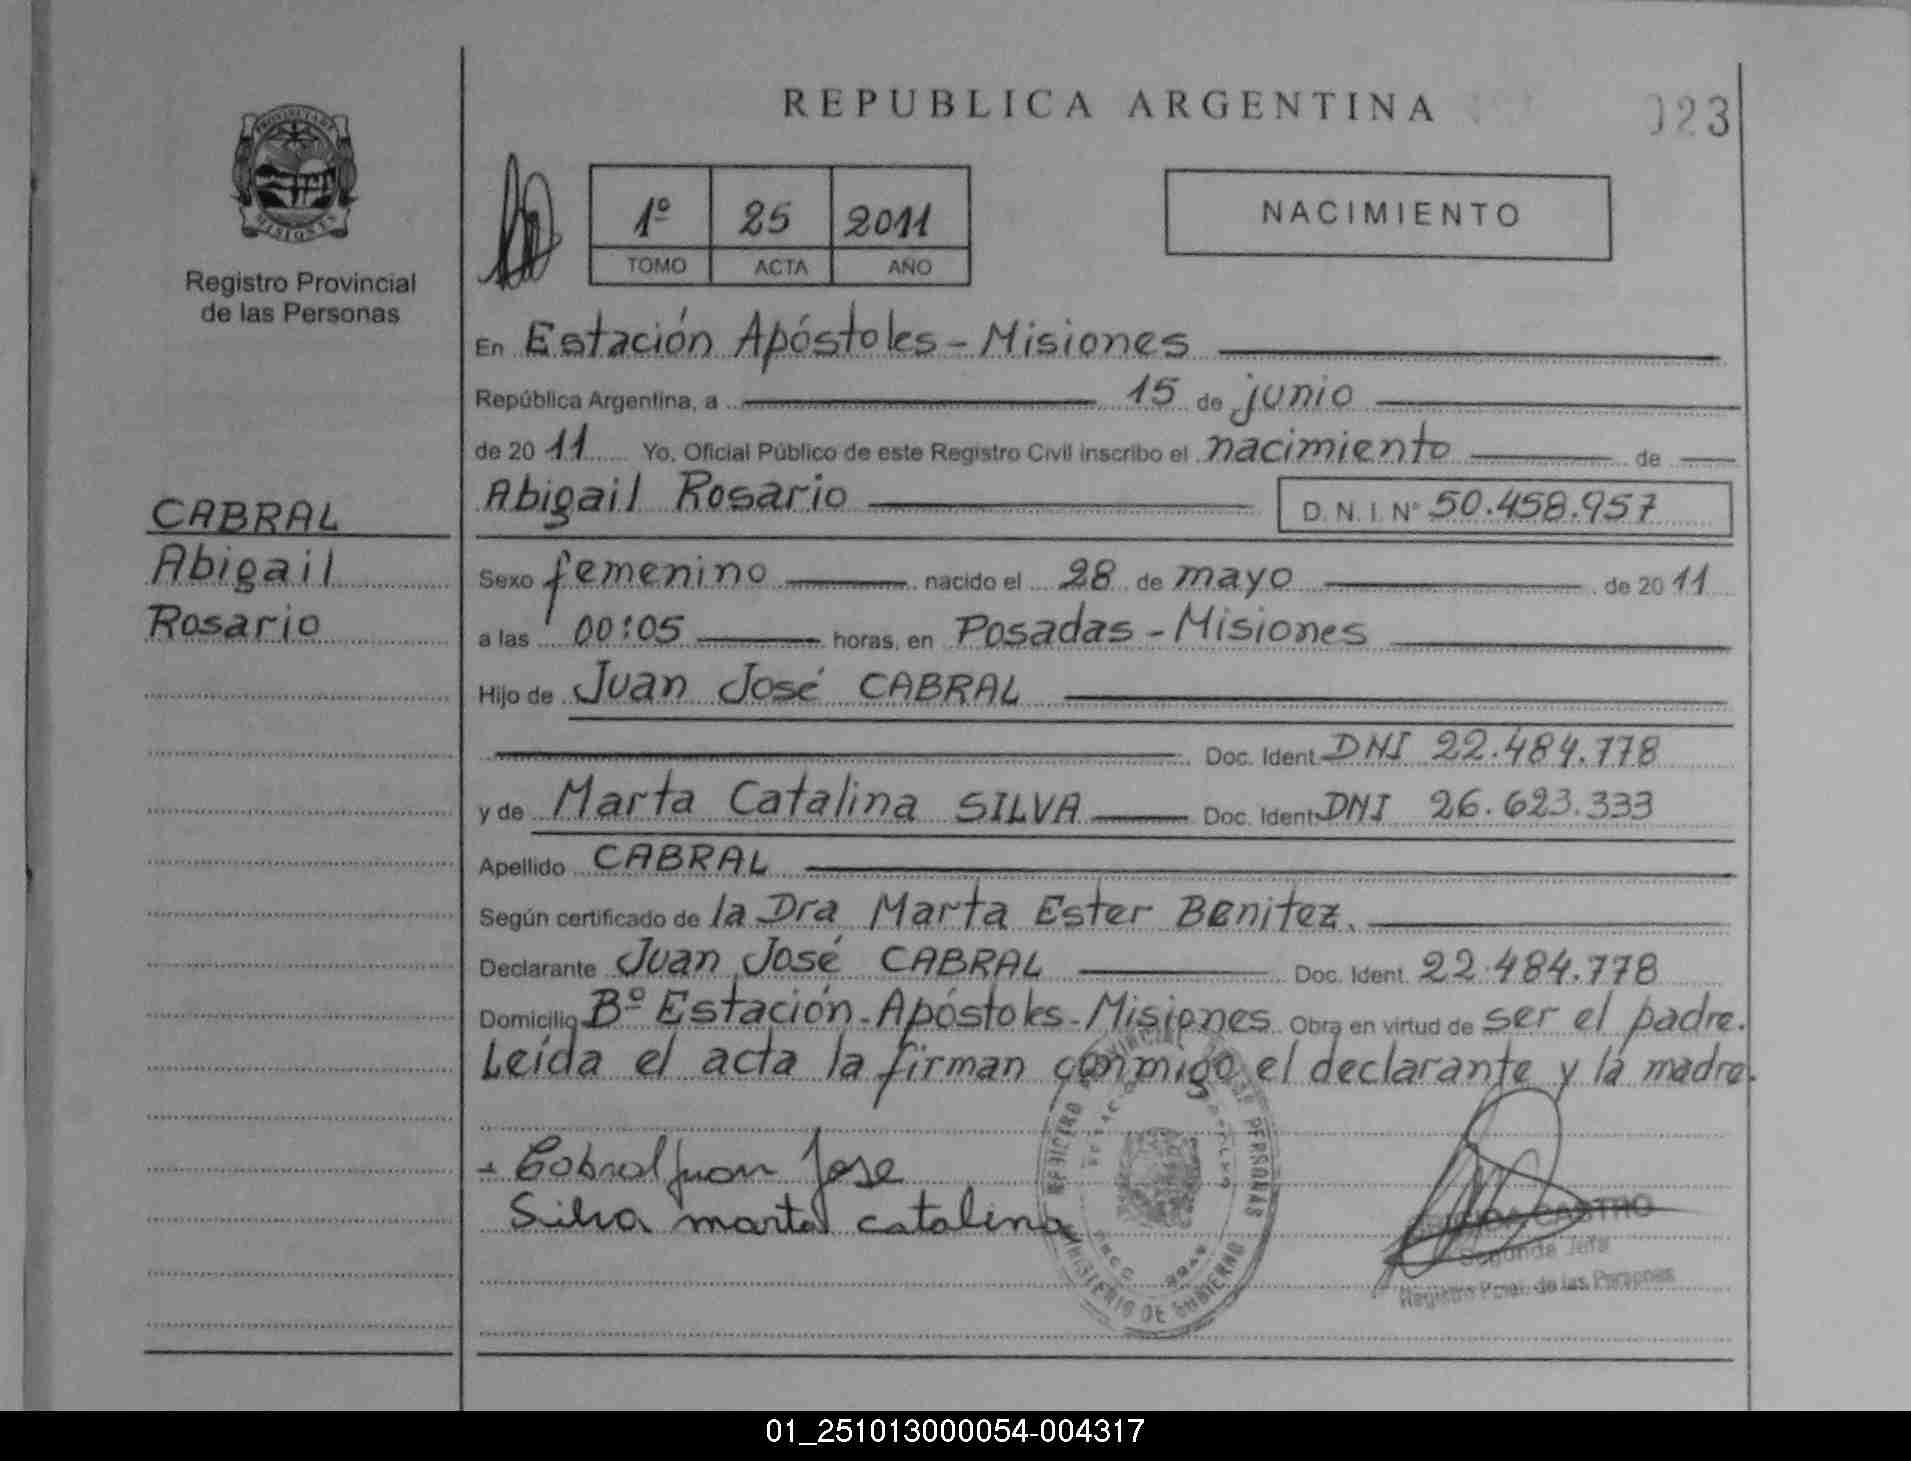 REPUBLICA ARGENTINA
023
PROVINCIA DE
MISIONES
Registro Provincial
de las Personas
1º 25 2011
TOMO ACTA AÑO
NACIMIENTO
En Estación Apóstoles - Misiones
República Argentina, a 15 de junio
de 2011 Yo, Oficial Público de este Registro Civil inscribo el nacimiento de
Abigail Rosario D. N. I. Nº 50.458.957
CABRAL
Abigail
Rosario
Sexo femenino nacido el 28 de mayo de 2011
a las 00:05 horas, en Posadas - Misiones
Hijo de Juan José CABRAL
Doc. Ident. DNI 22.484.778
y de Marta Catalina SILVA Doc. Ident. DNI 26.623.333
Apellido CABRAL
Según certificado de la Dra Marta Ester Benitez.
Declarante Juan José CABRAL Doc. Ident. 22.484.778
Domicilio Bº Estación - Apóstoles - Misiones Obra en virtud de ser el padre.
Leída el acta la firman conmigo el declarante y la madre.
Cabral Juan Jose
Silva marta catalina
REGISTRO PROVINCIAL DE LAS PERSONAS
MINISTERIO DE GOBIERNO
CASTRO
Segunda Jefa
Registro Pcial. de las Personas
01_251013000054-004317